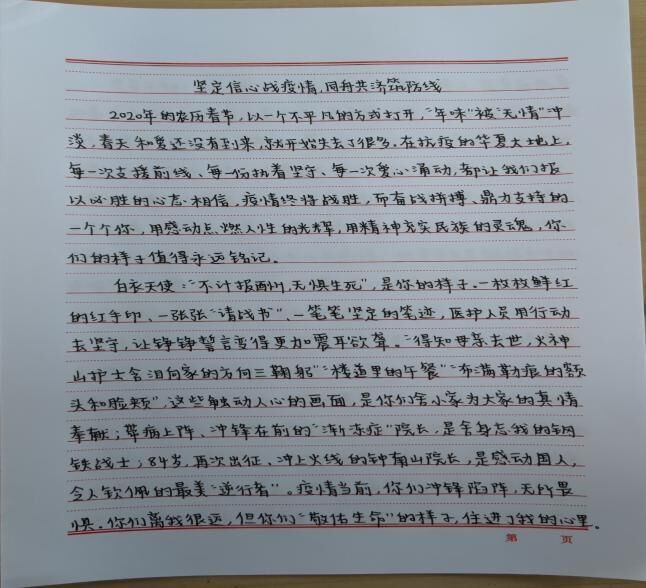 坚定信心战疫情,同舟共济筑防线
2020年的农历春节,以一个不平凡的方式打开,“年味”被“无情”冲
淡,春天和爱还没有到来,就开始失去了很多。在抗疫的华夏大地上,
每一次支援前线、每一份执着坚守、每一次爱心涌动,都让我们报
以必胜的心态相信,疫情终将战胜,而奋战拼搏、鼎力支持的
一个个你,用感动点燃人性的光辉,用精神充实民族的灵魂,你
们的样子值得永远铭记。
白衣天使:“不计报酬,无惧生死”,是你的样子。一枚枚鲜红
的红手印、一张张“请战书”、一笔笔坚定的笔迹,医护人员用行动
去坚守,让铮铮誓言变得更加震耳欲聋。“得知母亲去世,火神
山护士含泪向家的方向三鞠躬”“楼道里的午餐”“布满勒痕的额
头和脸颊”,这些触动人心的画面,是你们舍小家为大家的真情
奉献;带病上阵、冲锋在前的“渐冻症”院长,是舍身忘我的钢
铁战士;84岁,再次出征、冲上火线的钟南山院长,是感动国人,
令人钦佩的最美“逆行者”。疫情当前,你们冲锋陷阵,无所畏
惧。你们离我很远,但你们“敬佑生命”的样子,住进了我的心里。
第 页